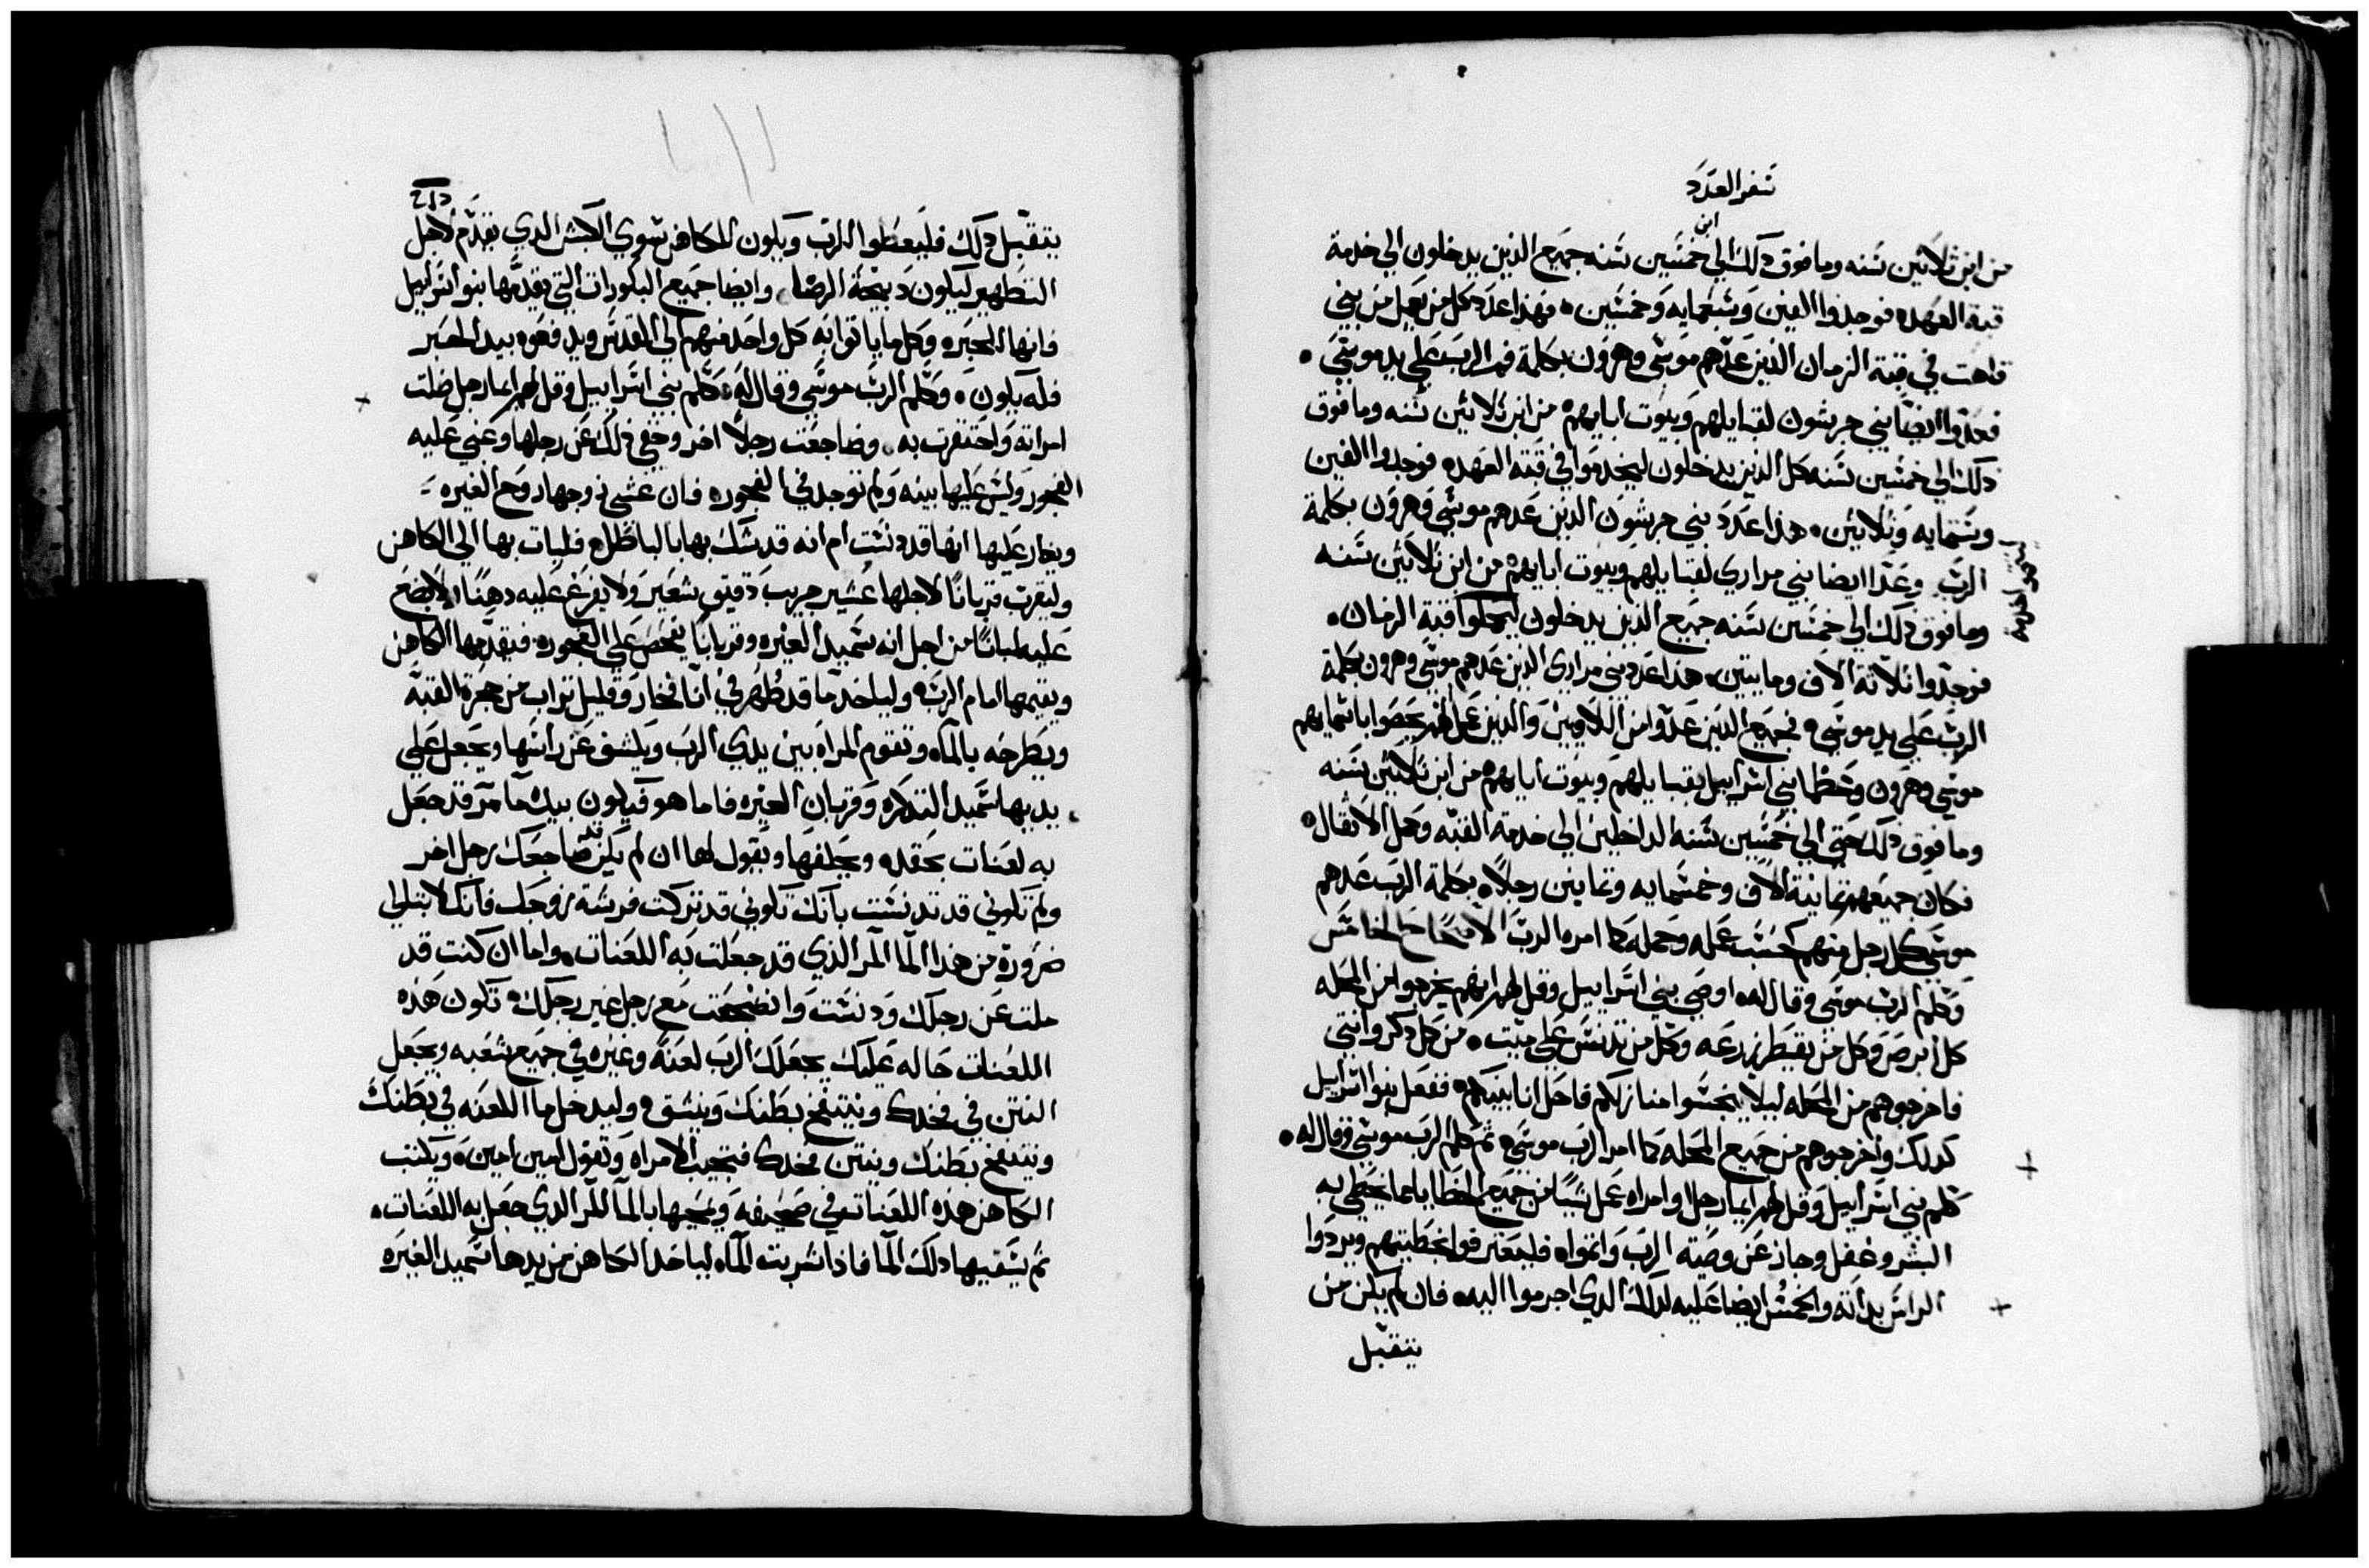 سفر العدد
من ابن ثلاثين سنه وما فوق دلك الي ابن خمسين سنه جميع الذين يدخلون الي خدمة
قبة العهده فوجدوا الفين وسبعمايه وخمسين، فهذا عدد كل من يعمل من بني
قاهت في قبة الزمان الذين عدهم موسى وهرون بكلمة فم الرب على يد موسى،
فعدوا ايضا بني جرشون لقبايلهم وبيوت ابايهم من ابن ثلاثين سنه وما فوق
دلك الي خمسين سنه كل الذين يدخلون ليخدموا في قبة العهده فوجدوا الفين
وستمايه وثلاثين، هذا عدد بني جرشون الدين عدهم موسى وهرون بكلمة
الرب وعدا ايضا بني مراري لقبايلهم وبيوت ابايهم من ابن ثلاثين سنه
وما فوق دلك الي خمسين سنه جميع الذين يدخلون ليعملوا قبة الزمان،
فوجدوا ثلاثة الاف ومايتين، هذا عدد بني مراري الذين عدهم موسى وهرون بكلمة
الرب على يد موسى، فجميع الدين عدوا من اللاويين والدين باسمايهم
موسى وهرون وعظما بني اسراييل بقبايلهم وبيوت ابايهم من ابن ثلاثين سنه
وما فوق دلك حتى الي خمسين سنه الداخلين الي خدمة القبه وحمل الاثقال،
فكان جميعهم ثمانية الاف وخمسمايه وثمانين رجلا، بكلمة الرب عدهم
موسى كل رجل منهم كحسب عمله وحمله كما امره الرب الاصحاح الخامس
وكلم الرب موسى وقال له، اوصي بني اسراييل وقل لهم انهم يخرجوا من المحله
كل ابرص وكل من يقطر زرعه وكل من تدنس على ميت، من كل دكر وانتى
فاخرجوهم من المحله ليلا ينجسوا منازلكم فاحل انا بينكم، ففعل بنوا اسراييل
كدلك واخرجوهم من جميع المحله كما امر الرب موسى، ثم كلم الرب موسى وقال له،
كلم بني اسراييل وقل لهم ايما رجل او امراه عمل شيا من جميع الخطايا مما يخطى به
البشر وغفل وجاز عن وصية الرب واثمواه فليعترفوا بخطيتهم ويردوا
الراس بداته والخمس ايضا عليه لدلك الدي اجرموا اليه، فان لم يكن من
يتقبل
يتقبل دلك فليعطوا الرب ويكون للكاهن سوي الكبش الدي يقدم لاجل
التطهير ليكون دبيحة الرضا، وايضا جميع البكورات التي يقدمها بنوا اسراييل
فانها للحبره وكل ما ياتوا به كل واحد منهم الي القدس ويدفعوه بيد الحبر
فله يكون، وكلم الرب موسى وقال له، كلم بني اسراييل وقل لهم ايما رجل ضلت
امراته واحتقرت به، وضاجعت رجلا اخر وخفي دلك عن رجلها وعمي عليه
الفجور وليس عليها بينه ولم توجد في الفجور، فان غشي زوجها روح الغيره
ويغار عليها انها قد دنست ام انه قد شك بها بالباطل، فليات بها الي الكاهن
وليقرب قربانا لاجلها عشير جريب دقيق شعير ولا يفرغ عليه دهنا ولا يضع
عليه لبانا من اجل انه سميد الغيره وقربانا يفحص على الفجور، فيقدمها الكاهن
ويقيمها امام الرب، وليا خد ما قد طهر في انا فخار وقليل تراب من حجرة القبة
ويطرحه بالماء، وتقوم المراه بين يدي الرب ويكشف عن راسها ويجعل علي
يديها سميد التذكره وقربان الغيره، فاما هو فيكون بيده ما مر قد جعل
به لعنات بحقد، ويحلفها ويقول لها ان لم يكن قد ضاجعك رجل اخر
ولم تكوني قد تدنست بانك تكوني قد تركت فرشة زوجك فانك لا تبتلي
ضرورة من هذا الما المر الذي قد جعلت به اللعنات، واما ان كنت قد
ملت عن رجلك ودنست وانضجعت مع رجل غير رجلك، تكون هذه
اللعنات حاله عليك يجعلك الرب لعنة وعبره في جميع شعبه ويجعل
النتن في فخدك وينتفخ بطنك وينشق، وليدخل ما اللعنه في بطنك
وينتفخ بطنك وينتن فخدك فتجيب الامراه وتقول امين امين، ويكتب
الكاهن هذه اللعنات في صحيفه ويمحيها بالما المر الدي جعل به اللعنات،
ثم يسقيها دلك الما فاذا شربت الماه لياخد الكاهن من يدها سميد الغيره